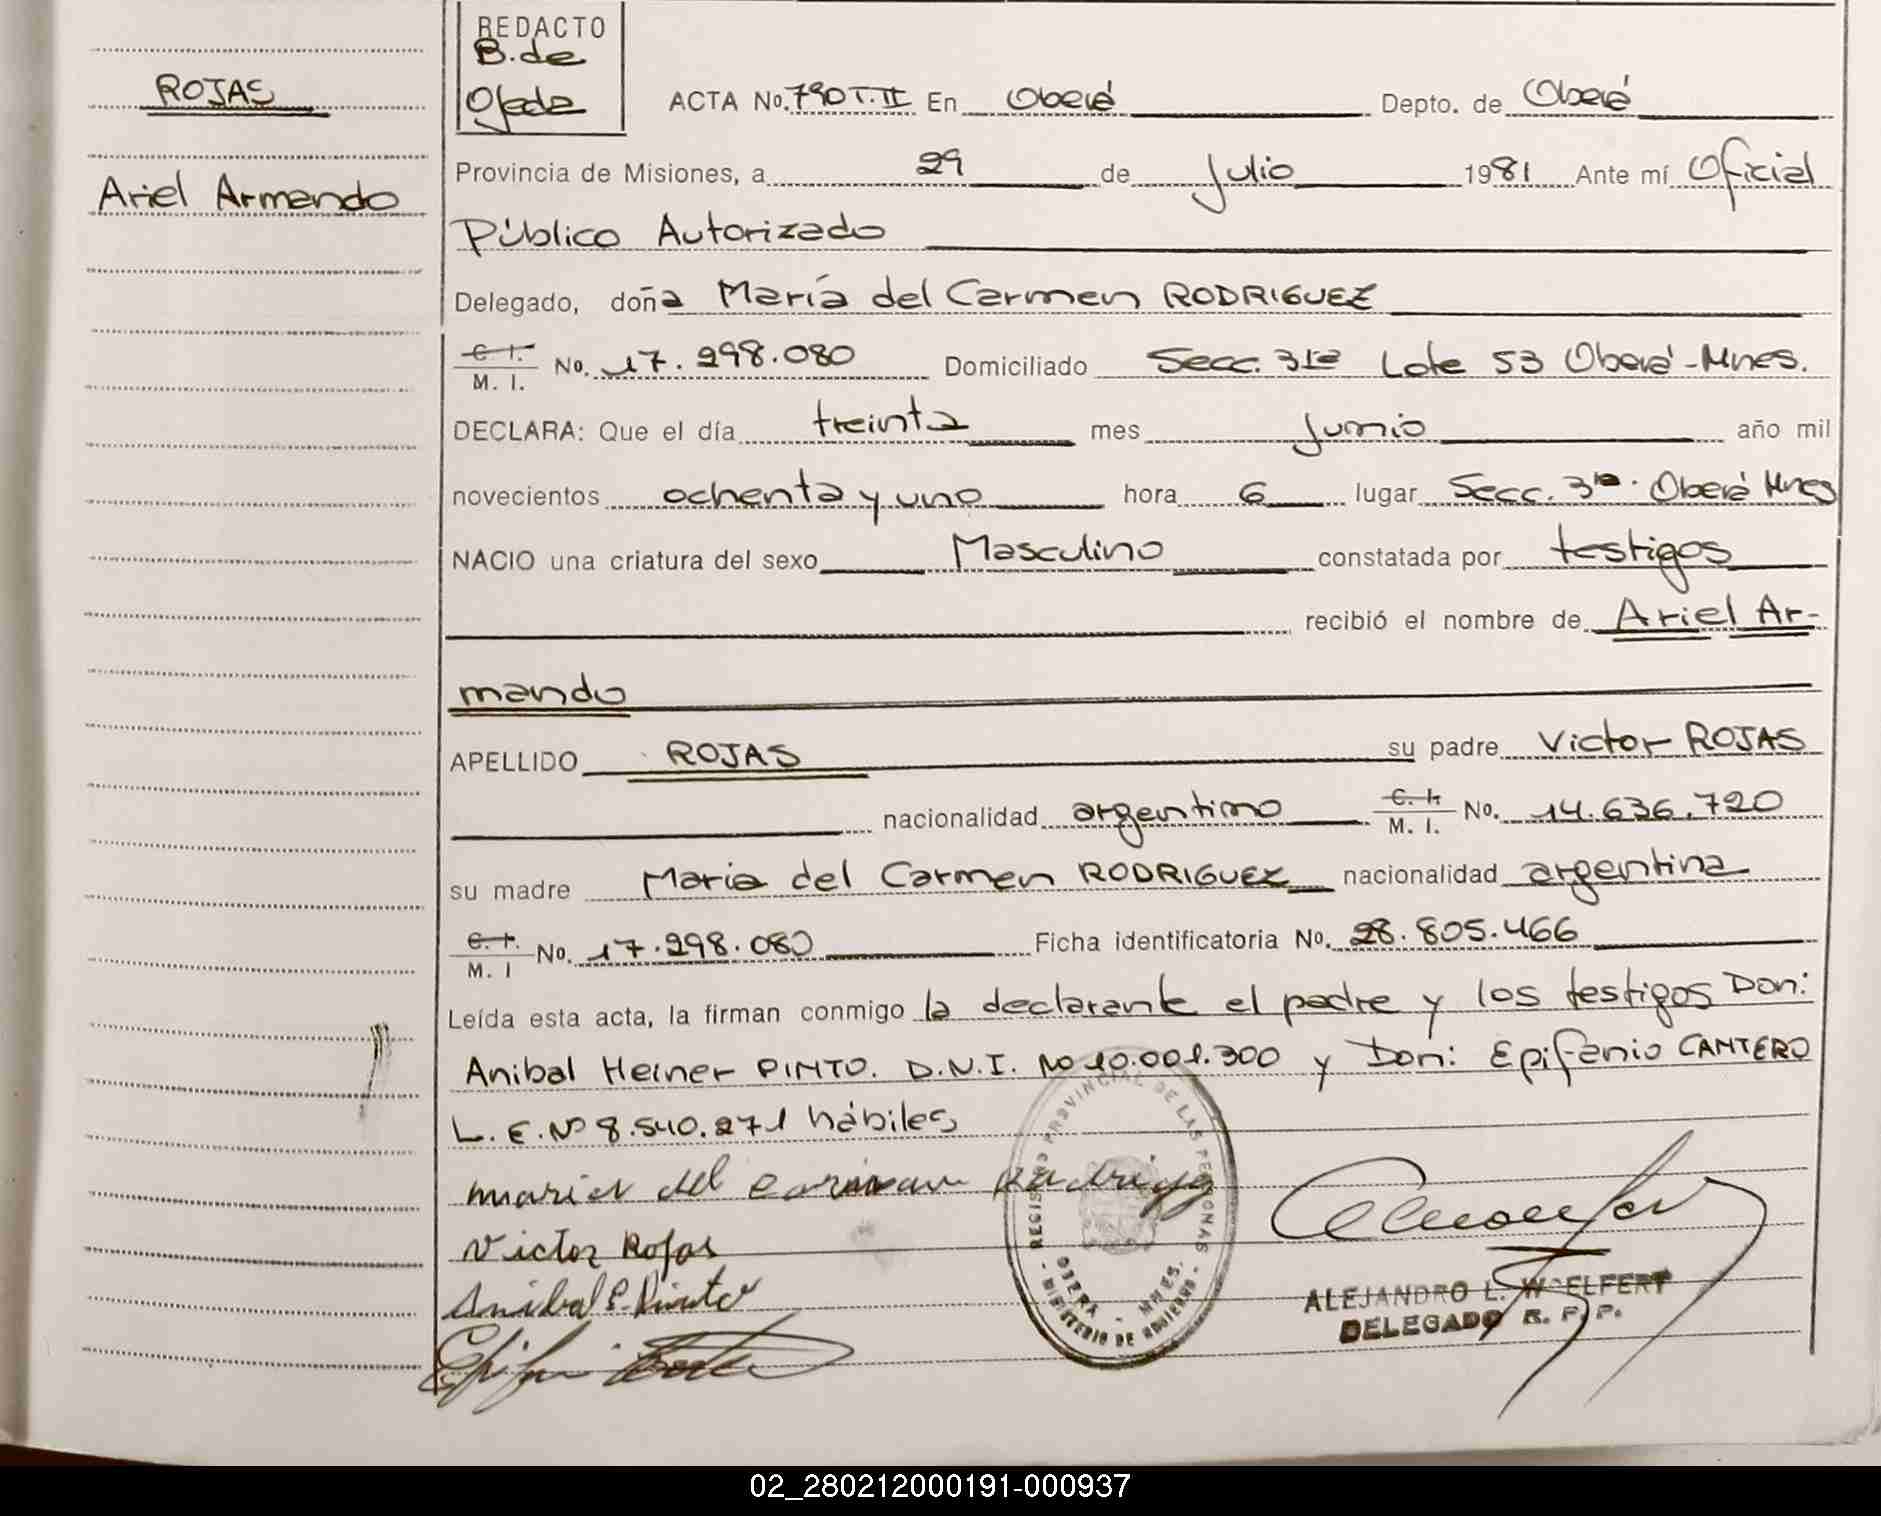 ROJAS
Ariel Armando
REDACTO
B. de
Ojeda
ACTA No. 790 T. II En Oberá Depto. de Oberá
Provincia de Misiones, a 29 de Julio 1981 Ante mí Oficial
Público Autorizado
Delegado, doña María del Carmen RODRIGUEZ
C. I. / M. I. No. 17.298.080 Domiciliado Secc. 3ra Lote 53 Oberá-Mnes.
DECLARA: Que el día treinta mes junio año mil
novecientos ochenta y uno hora 6 lugar Secc. 3ra. Oberá Mnes
NACIO una criatura del sexo Masculino constatada por testigos
recibió el nombre de Ariel Ar-
mando
APELLIDO ROJAS su padre Victor ROJAS
nacionalidad argentino C. I. / M. I. No. 14.636.720
su madre Maria del Carmen RODRIGUEZ nacionalidad argentina
C. I. / M. I No. 17.298.080 Ficha identificatoria No. 28.805.466
Leída esta acta, la firman conmigo la declarante el padre y los testigos Don:
Anibal Heiner PINTO. D.N.I. No 10.001.300 y Don: Epifanio CANTERO
L. E. Nº 8.540.271 hábiles
maria del carmen
Victor Rojas
Anibal E. Pinto
REGISTRO PROVINCIAL DE LAS PERSONAS
OBERA - MNES.
- MINISTERIO DE GOBIERNO -
ALEJANDRO L. WOELFERT
DELEGADO R. P. P.
02_280212000191-000937